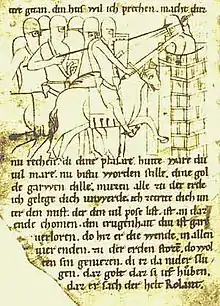 ture gran. din hus wil ich prechen. macht du z
nu rechen. di dine plasure. hiute wure du
vil mare. nu bistu worden stille. dine gol
de garwen alle. muzen alle zu der erde
ich gelege dich unwerde. ich trette dich un
ter den mist. der den vil pose list. ist an daz
ende chomen. den trugenhaut du ist gar
verloren. do hiez er die wende. in allen
vier enden. zu der erden storze. do wol
ten sin genieren. di er da nider slu
gen. daz golt daz si uf huben.
daz ersach der helt Rolant.